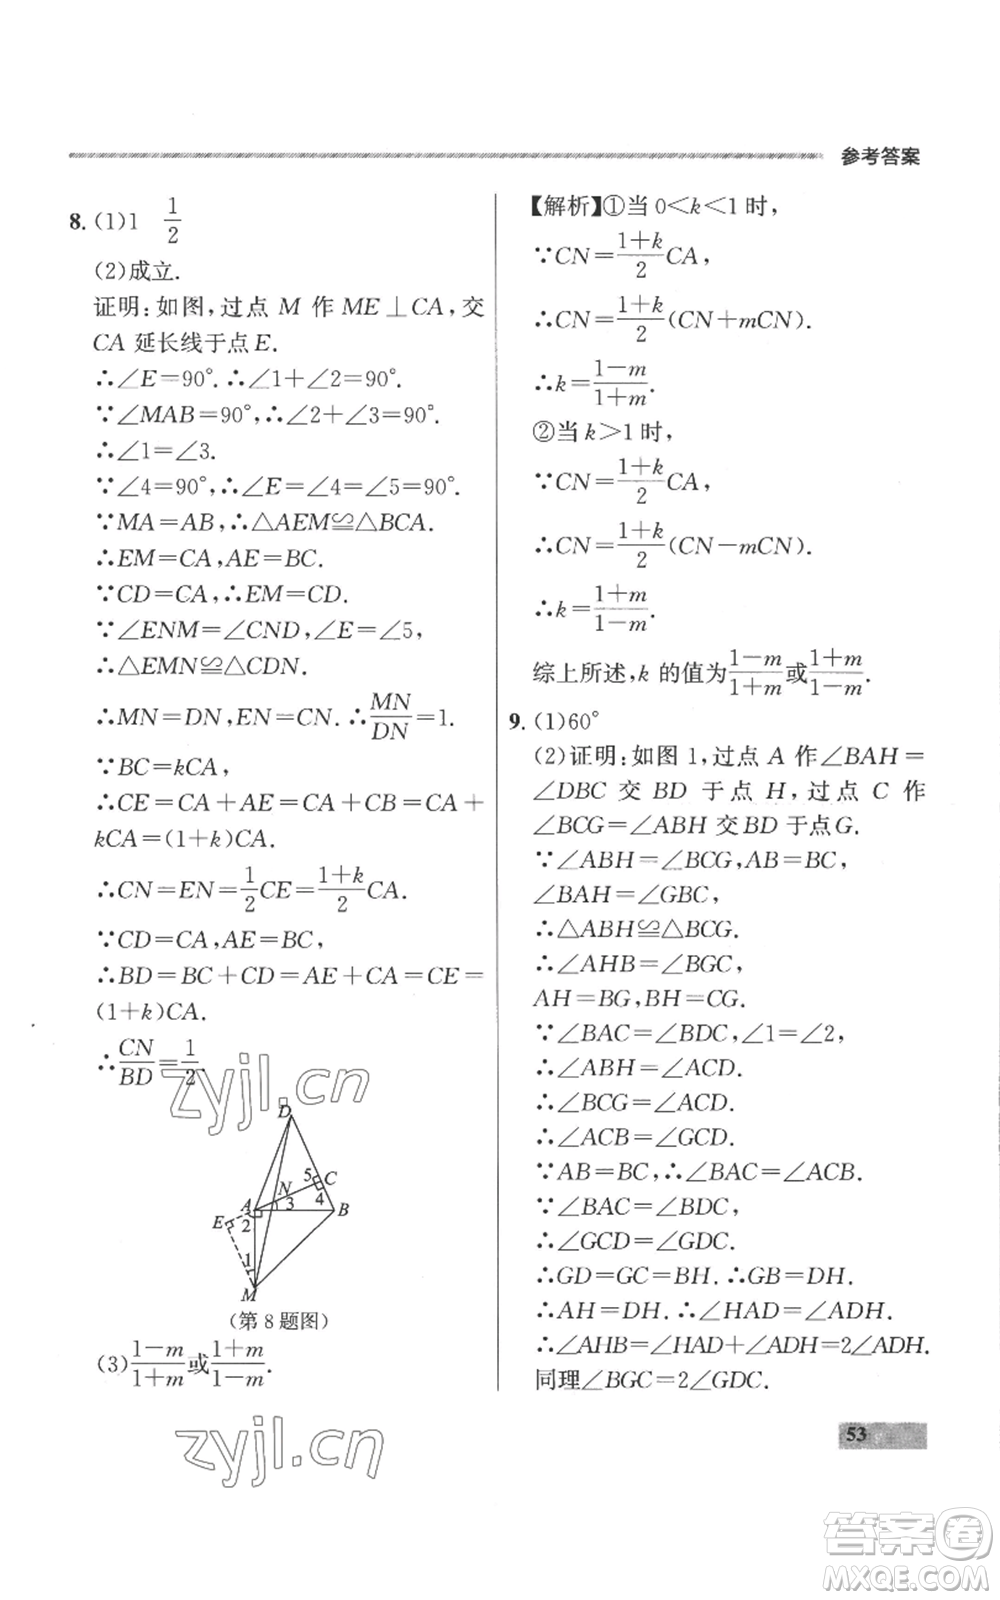 参考答案
8. (1)1  1/2
(2)成立.
证明:如图,过点 M 作 ME⊥CA,交
CA 延长线于点 E.
∴∠E=90°.∴∠1+∠2=90°.
∵∠MAB=90°,∴∠2+∠3=90°.
∴∠1=∠3.
∵∠4=90°,∴∠E=∠4=∠5=90°.
∵MA=AB,∴△AEM≌△BCA.
∴EM=CA,AE=BC.
∵CD=CA,∴EM=CD.
∵∠ENM=∠CND,∠E=∠5,
∴△EMN≌△CDN.
∴MN=DN,EN=CN.∴MN/DN=1.
∵BC=kCA,
∴CE=CA+AE=CA+CB=CA+
kCA=(1+k)CA.
∴CN=EN=1/2CE=(1+k)/2CA.
∵CD=CA,AE=BC,
∴BD=BC+CD=AE+CA=CE=
(1+k)CA.
∴CN/BD=1/2.
zyjl.cn
D
5 C
N 4
A 3 B
E 2
1
M
(第 8 题图)
(3)(1-m)/(1+m)或(1+m)/(1-m).
zyjl.cn
【解析】①当 0<k<1 时,
∵CN=(1+k)/2CA,
∴CN=(1+k)/2(CN+mCN).
∴k=(1-m)/(1+m).
②当 k>1 时,
∵CN=(1+k)/2CA,
∴CN=(1+k)/2(CN-mCN).
∴k=(1+m)/(1-m).
综上所述,k 的值为(1-m)/(1+m)或(1+m)/(1-m).
9. (1)60°
(2)证明:如图 1,过点 A 作∠BAH=
∠DBC 交 BD 于点 H,过点 C 作
∠BCG=∠ABH 交 BD 于点 G.
∵∠ABH=∠BCG,AB=BC,
∠BAH=∠GBC,
∴△ABH≌△BCG.
∴∠AHB=∠BGC,
AH=BG,BH=CG.
∵∠BAC=∠BDC,∠1=∠2,
∴∠ABH=∠ACD.
∴∠BCG=∠ACD.
∴∠ACB=∠GCD.
∵AB=BC,∴∠BAC=∠ACB.
∵∠BAC=∠BDC,
∴∠GCD=∠BDC.
∴GD=GC=BH.∴GB=DH.
∴AH=DH.∴∠HAD=∠ADH.
∴∠AHB=∠HAD+∠ADH=2∠ADH.
同理∠BGC=2∠GDC.
53
答案卷
MXQE.COM